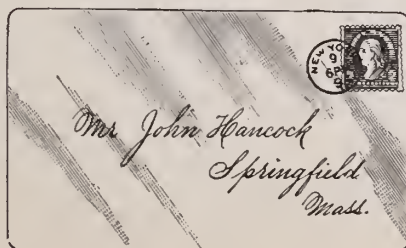 NEW YORK
9
6PM
Mr John Hancock
Springfield
Mass.